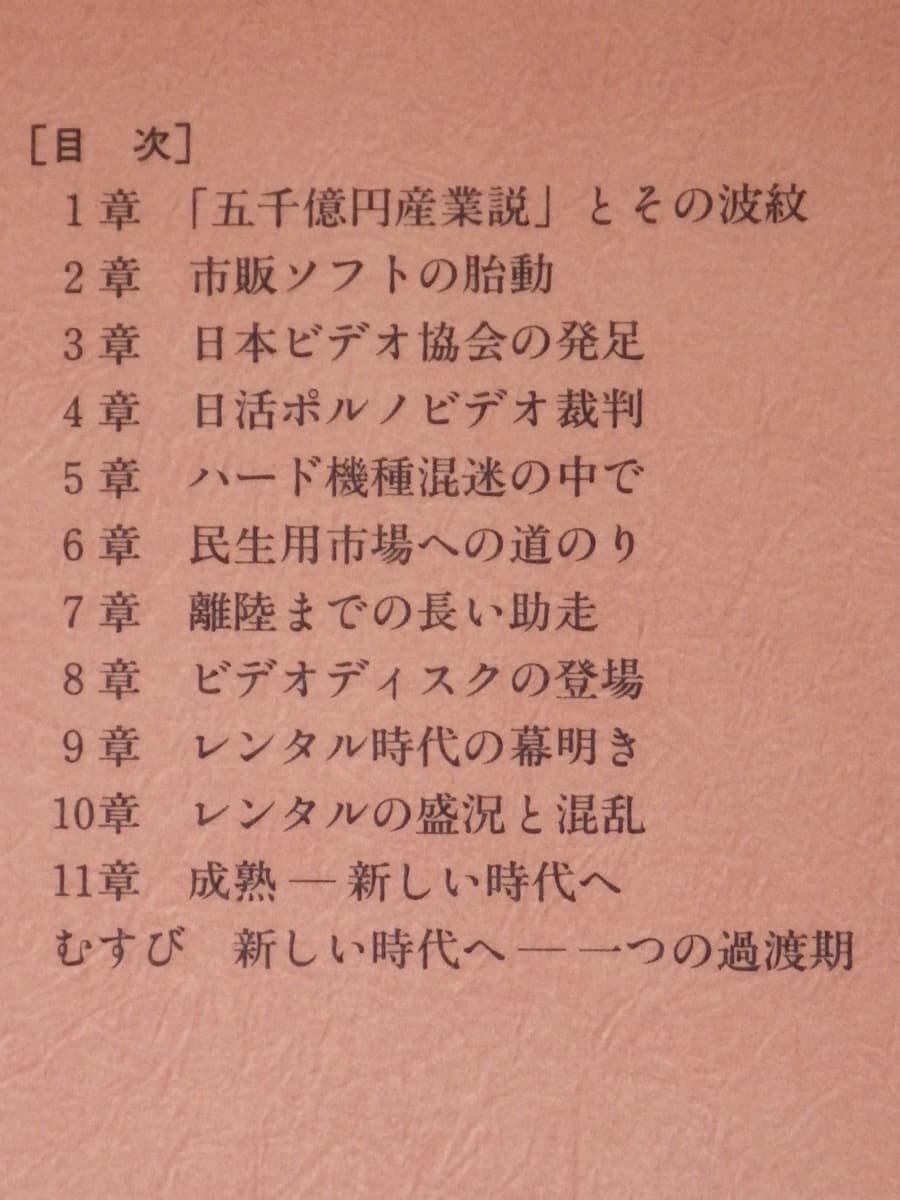 [目　次]
1章　「五千億円産業説」とその波紋
2章　市販ソフトの胎動
3章　日本ビデオ協会の発足
4章　日活ポルノビデオ裁判
5章　ハード機種混迷の中で
6章　民生用市場への道のり
7章　離陸までの長い助走
8章　ビデオディスクの登場
9章　レンタル時代の幕明き
10章　レンタルの盛況と混乱
11章　成熟―新しい時代へ
むすび　新しい時代へ―一つの過渡期